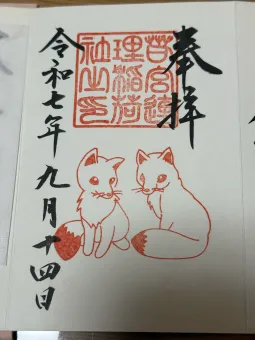 奉拝
理稲荷
社之印
令和七年九月十四日